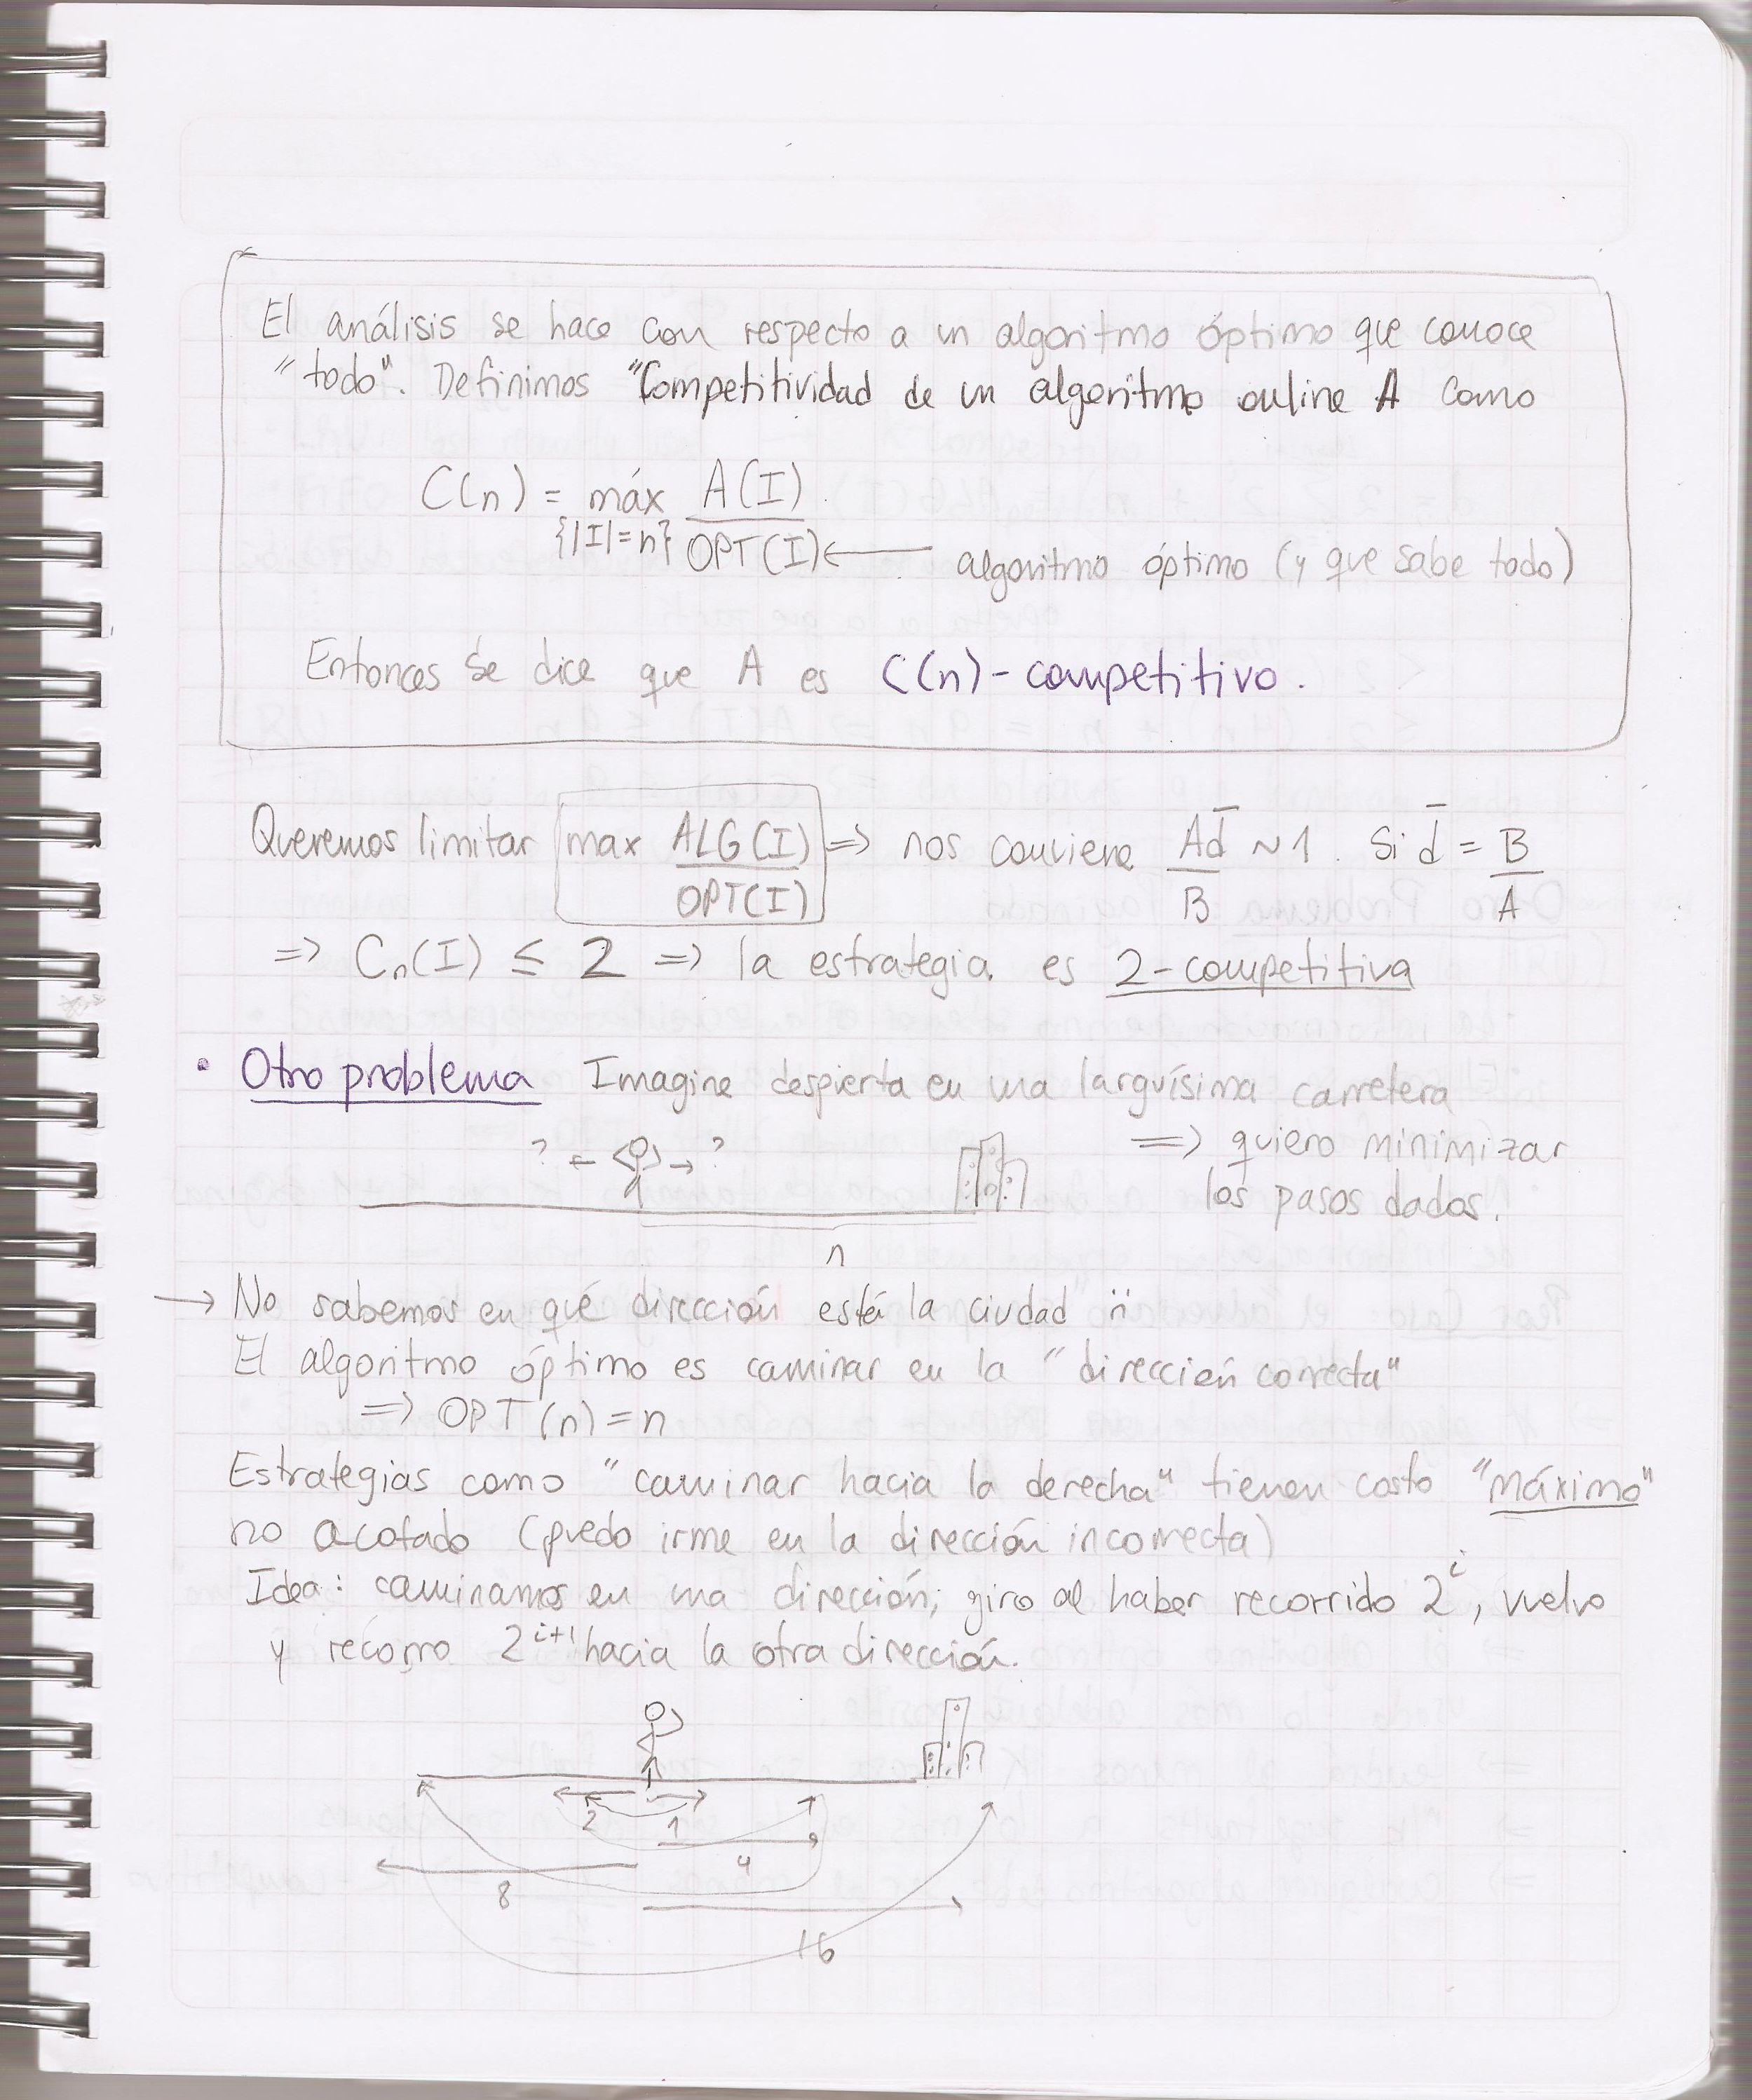 El análisis se hace con respecto a un algoritmo óptimo que conoce
"todo". Definimos "Competitividad de un algoritmo online A como
C(n) = máx A(I)
{|I|=n} OPT(I) ← algoritmo óptimo (y que sabe todo)
Entonces se dice que A es C(n)-competitivo.
Queremos limitar max ALG(I) => nos conviene Ad̄ ~ 1. Si d̄ = B
OPT(I) B A
=> Cn(I) ≤ 2 => la estrategia. es 2-competitiva
• Otro problema Imagine despierta en una larguísima carretera
? ← → ? => quiero minimizar
los pasos dados.
n
→ No sabemos en qué dirección está la ciudad ¨n
El algoritmo óptimo es caminar en la "dirección correcta"
=> OPT(n) = n
Estrategias como "caminar hacia la derecha" tienen costo "máximo"
no acotado (puedo irme en la dirección incorrecta)
Idea: caminamos en una dirección; giro al haber recorrido 2^i, vuelvo
y recorro 2^{i+1} hacia la otra dirección.
2 1
4
8
16